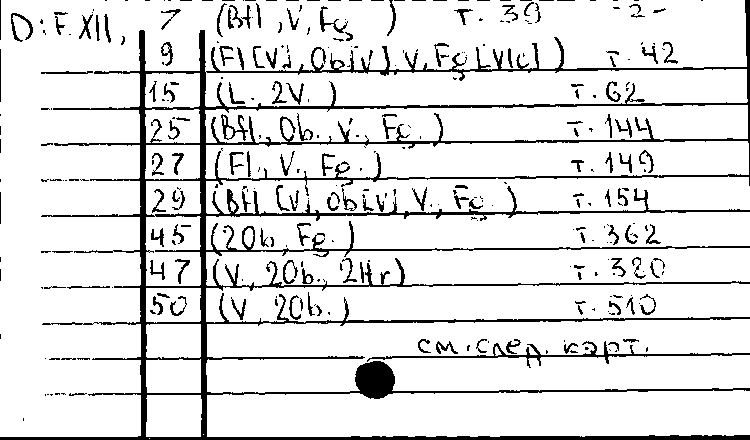 D: F. XII, 7 (Bfl, V, Fg ) т. 39 -2-
9 (Fl [V], Ob[V], V, Fg [Vlc]) т. 42
15 (L., 2V.) т. 62
25 (Bfl., Ob., V., Fg.) т. 144
27 (Fl., V., Fg.) т. 149
29 (Bfl. [V], Ob[V], V., Fg.) т. 154
45 (2Ob., Fg.) т. 362
47 (V., 2Ob., 2Hr) т. 320
50 (V, 2Ob.) т. 510
см. след. карт.